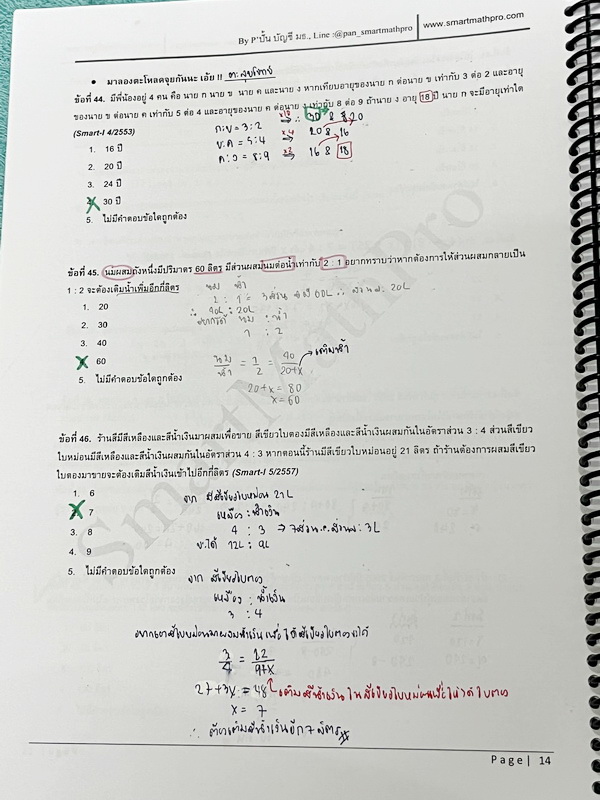 By P'ปั้น บัญชี มธ., Line :@pan_smartmathpro | www.smartmathpro.com
• มาลองตะโหลดจุยกันนะ เอ้ย !!
ข้อที่ 44. มีพี่น้องอยู่ 4 คน คือ นาย ก นาย ข นาย ค และนาย ง หากเทียบอายุของนาย ก ต่อนาย ข เท่ากับ 3 ต่อ 2 และอายุ
ของนาย ข ต่อนาย ค เท่ากับ 5 ต่อ 4 และอายุของนาย ค ต่อนาย ง เท่ากับ 8 ต่อ 9 ถ้านาย ง อายุ 18 ปี นาย ก จะมีอายุเท่าใด
(Smart-I 4/2553)
ก:ข = 3:2
ข:ค = 5:4 x4 20 8 16
ค:ง = 8:9 x2 16 8 18
1. 16 ปี
2. 20 ปี
3. 24 ปี
4. 30 ปี
5. ไม่มีคำตอบข้อใดถูกต้อง
ข้อที่ 45. นมผสมถังหนึ่งมีปริมาตร 60 ลิตร มีส่วนผสมนมต่อน้ำเท่ากับ 2 : 1 อยากทราบว่าหากต้องการให้ส่วนผสมกลายเป็น
1 : 2 จะต้องเติมน้ำเพิ่มอีกกี่ลิตร
1. 20
2. 30
3. 40
4. 60
5. ไม่มีคำตอบข้อใดถูกต้อง
นม น้ำ
2 : 1
40L : 20L
นม : น้ำ
1 : 2
นม/น้ำ = 1/2 = 40/20+x → เติมน้ำ
20+x = 80
x = 60
ข้อที่ 46. ร้านสีมีสีเหลืองและสีน้ำเงินมาผสมเพื่อขาย สีเขียวใบตองมีสีเหลืองและสีน้ำเงินผสมกันในอัตราส่วน 3 : 4 ส่วนสีเขียว
ใบหม่อนมีสีเหลืองและสีน้ำเงินผสมกันในอัตราส่วน 4 : 3 หากตอนนี้ร้านมีสีเขียวใบหม่อนอยู่ 21 ลิตร ถ้าร้านต้องการผสมสีเขียว
ใบตองมาขายจะต้องเติมสีน้ำเงินเข้าไปอีกกี่ลิตร (Smart-I 5/2557)
1. 6
2. 7
3. 8
4. 9
5. ไม่มีคำตอบข้อใดถูกต้อง
จาก สีเขียวใบหม่อน 21 L
เหลือง : น้ำเงิน
4 : 3 → 7ส่วน ∴ ส่วนละ 3L
จะได้ 12L : 9L
จาก สีเขียวใบตอง
เหลือง : น้ำเงิน
3 : 4
3/4 = 12/9+x
27+3x = 48
x = 7
∴ ต้องเติมสีน้ำเงินอีก 7 ลิตร
SmartMathPro
Page | 14